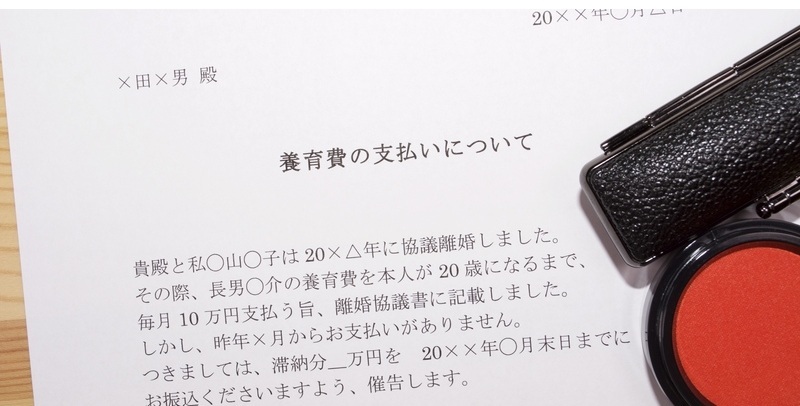 20××年〇月△日
×田×男 殿
養育費の支払いについて
貴殿と私〇山〇子は 20×△年に協議離婚しました。
その際、長男〇介の養育費を本人が 20 歳になるまで、
毎月 10 万円支払う旨、離婚協議書に記載しました。
しかし、昨年×月からお支払いがありません。
つきましては、滞納分__万円を 20××年〇月末日までに
お振込くださいますよう、催告します。